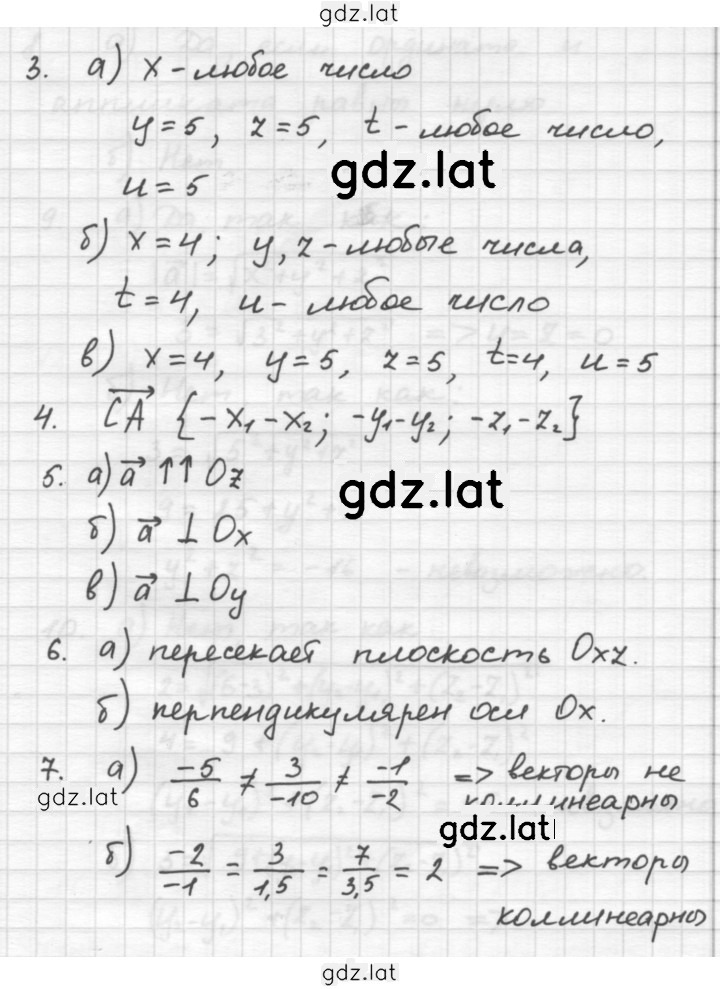 gdz.lat
3. а) x - любое число
y = 5, z = 5, t - любое число,
gdz.lat
u = 5
б) x = 4; y, z - любые числа,
t = 4, u - любое число
в) x = 4, y = 5, z = 5, t = 4, u = 5
4. $\overrightarrow{CA}$ {-x₁-x₂; -y₁-y₂; -z₁-z₂}
5. а) $\vec{a}$ ↑↑ Oz
gdz.lat
б) $\vec{a}$ ⊥ Ox
в) $\vec{a}$ ⊥ Oy
6. а) пересекает плоскость Oxz.
б) перпендикулярен оси Ox.
7. а) $\frac{-5}{6} ≠ \frac{3}{-10} ≠ \frac{-1}{-2}$ => векторы не
gdz.lat
коллинеарны
gdz.lat
б) $\frac{-2}{-1} = \frac{3}{1,5} = \frac{7}{3,5} = 2$ => векторы
коллинеарны
gdz.lat